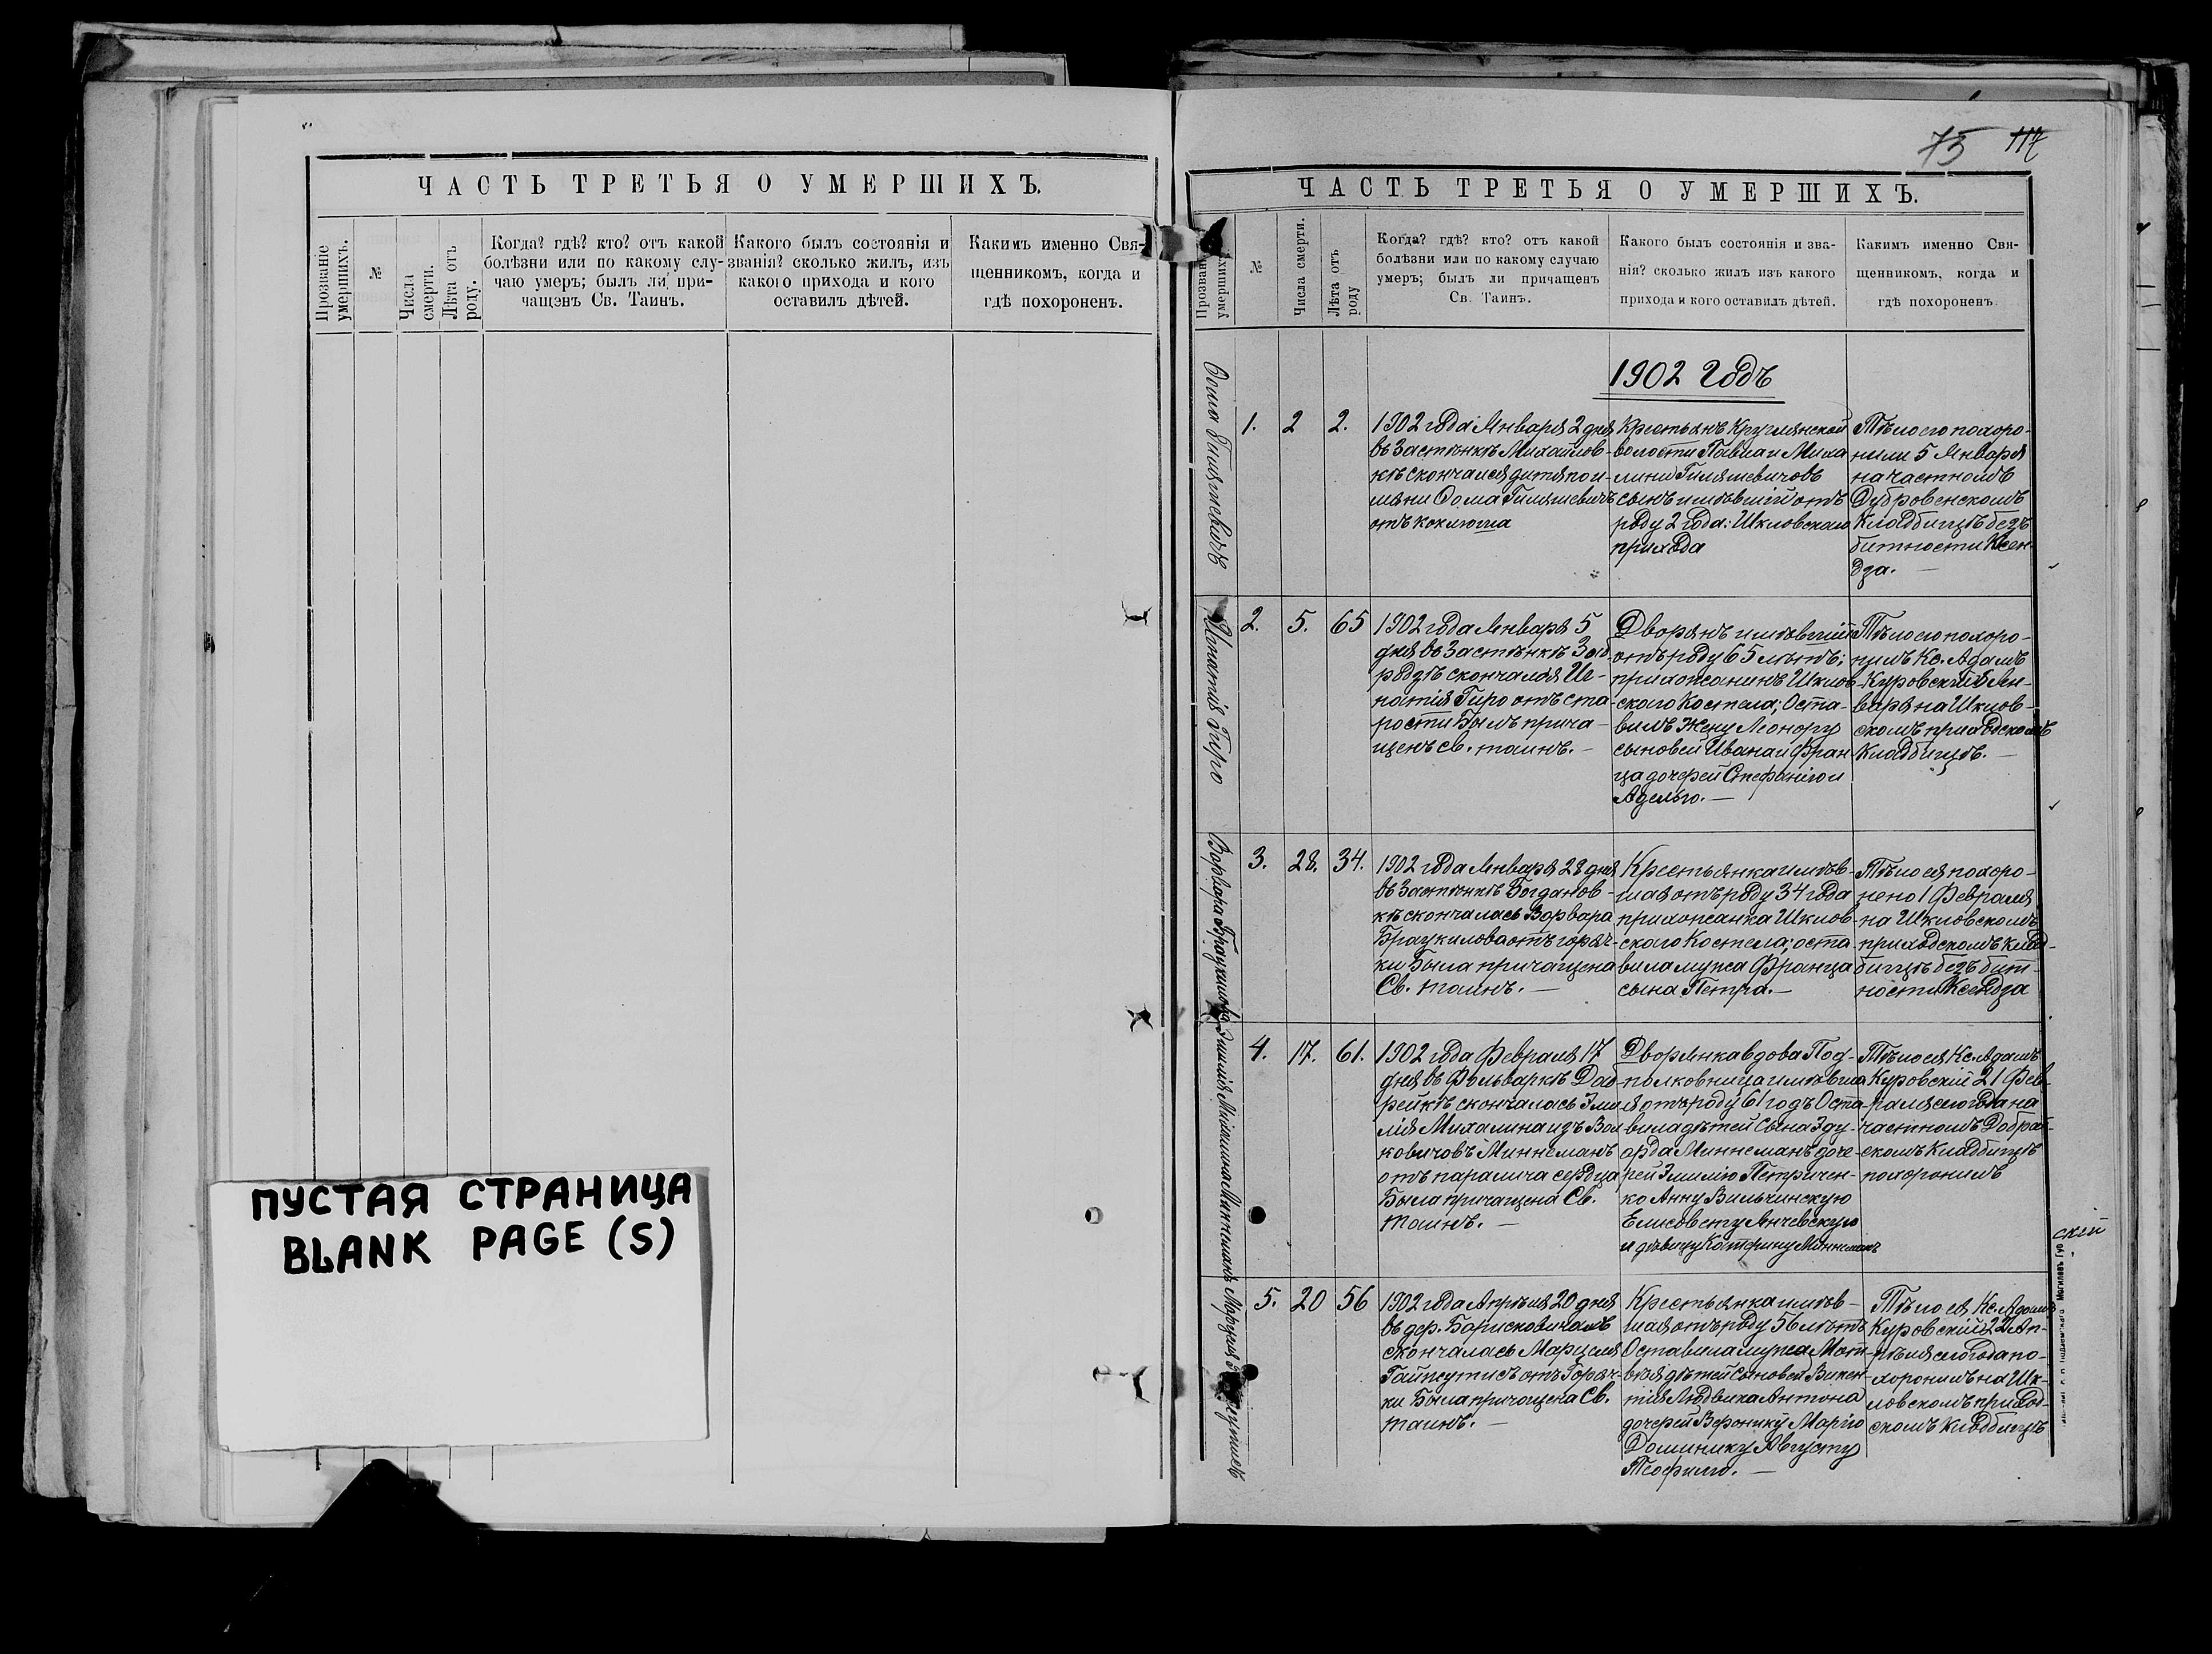 ЧАСТЬ ТРЕТЬЯ О УМЕРШИХЪ.
Прозваніе
умершихъ.
№
Числа
смерти.
Лѣта отъ
роду.
Когда? гдѣ? кто? отъ какой
болѣзни или по какому слу-
чаю умеръ; былъ ли при-
чащенъ Св. Таинъ.
Какого былъ состоянія и
званія? сколько жилъ, изъ
какого прихода и кого
оставилъ дѣтей.
Какимъ именно Свя-
щенникомъ, когда и
гдѣ похороненъ.
ПУСТАЯ СТРАНИЦА
BLANK PAGE (S)
75 117
ЧАСТЬ ТРЕТЬЯ О УМЕРШИХЪ.
Прозваніе
умершихъ
№
Числа смерти.
Лѣта отъ
роду
Когда? гдѣ? кто? отъ какой
болѣзни или по какому случаю
умеръ; былъ ли причащенъ
Св. Таинъ.
Какого былъ состоянія и зва-
нія? сколько жилъ изъ какого
прихода и кого оставилъ дѣтей.
Какимъ именно Свя-
щенникомъ, когда и
гдѣ похороненъ.
1902 Годъ
Ѳома
1.
2
2.
1902 года Января 2 дня
въ Застѣнкѣ Михайлов-
кѣ скончался дитя по и-
мени Ѳома
отъ коклюша
Крестьянъ Круглянской
волости Павла и Миха
лини
сынъ имѣвшій отъ
роду 2 года: Шкловскаго
прихода
Тѣло его похоро-
нили 5 Января
на частномъ
Дубровенскомъ
Кладбищѣ безъ
битности Ксен-
дза.
Игнатія Гиро
2.
5.
65
1902 года Января 5
дня въ Застѣнкѣ
скончался Иг-
натія Гиро отъ ста-
рости Былъ прича-
щенъ св. таинъ.
Дворянъ имѣвшій
отъ роду 65 лѣтъ;
прихожанинъ Шклов-
ского Костела; Оста-
вилъ Жену Леонору
сыновей Ивана и Фран-
ца дочерей Стефанію и
Аделью.
Тѣло его похоро-
нилъ Кс. Адамъ
Куровскій 8 Ян-
варя на Шклов-
скомъ приходскомъ
Кладбищѣ.
Варвара Браукилова
3.
28.
34.
1902 года Января 28 дня
въ Застѣнкѣ Богданов-
кѣ скончалась Варвара
Браукилова отъ горяч-
ки Была причащена
Св. таинъ.
Крестьянка имѣв-
шая отъ роду 34 года
прихожанка Шклов-
ского Костела; оста-
вила мужа Франца
сына Петра.
Тѣло ея похоро-
нено 1 Февраля
на Шкловскомъ
приходскомъ клад-
бищѣ безъ бит-
ности Ксендза
Эмилія Михалина Миннеманъ
4.
17.
61.
1902 года Февраля 17
дня въ Фольваркѣ Доб-
рейкѣ скончалась Эми
лія Михалина изъ Вол
ковичовъ Миннеманъ
отъ паралича сердца
Была причащена Св.
таинъ.
Дворянка вдова Под-
полковница имѣвша
я отъ роду 61 годъ Оста-
вила дѣтей Сына Эду-
арда Миннеманъ доче-
рей Эмилію Петричен-
ко Анну Вильчинскую
Елисавету Янчевскую
и дѣвицу Катрину Миннеманъ
Тѣло ея Кс. Адамъ
Куровскій 21 Фев-
раля сего года на
частномъ Добрей-
скомъ Кладбищѣ
похоронилъ
скій
Марцеля
5.
20
56
1902 года Апрѣля 20 дня
въ дер. Борисковичахъ
скончалась Марцеля
Гайжутисъ отъ Горяч-
ки Была причащена Св.
таинъ.
Крестьянка имѣв-
шая отъ роду 56 лѣтъ
Оставила мужа Мат-
вѣя дѣтей сыновей Викен-
тія Людвика Антона
дочерей Веронику Марію
Доминику Августу
Теофилю.
Тѣло ея Кс. Адамъ
Куровскій 22 Ап-
рѣля сего года по-
хоронилъ на Шк-
ловскомъ приход-
скомъ кладбищѣ